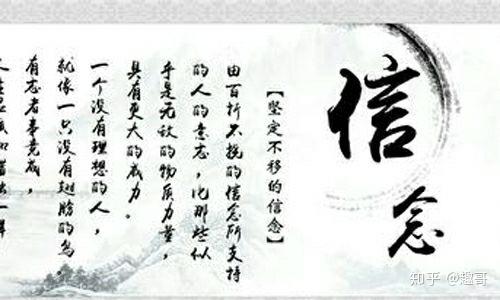 信念
【坚定不移的信念】
由百折不挠的信念所支持
的人的意志，比那些似
乎是无敌的物质力量，
具有更大的威力。
一个没有理想的人，
就像一只没有翅膀的鸟。
有志者事竟成，
知乎 @趣哥